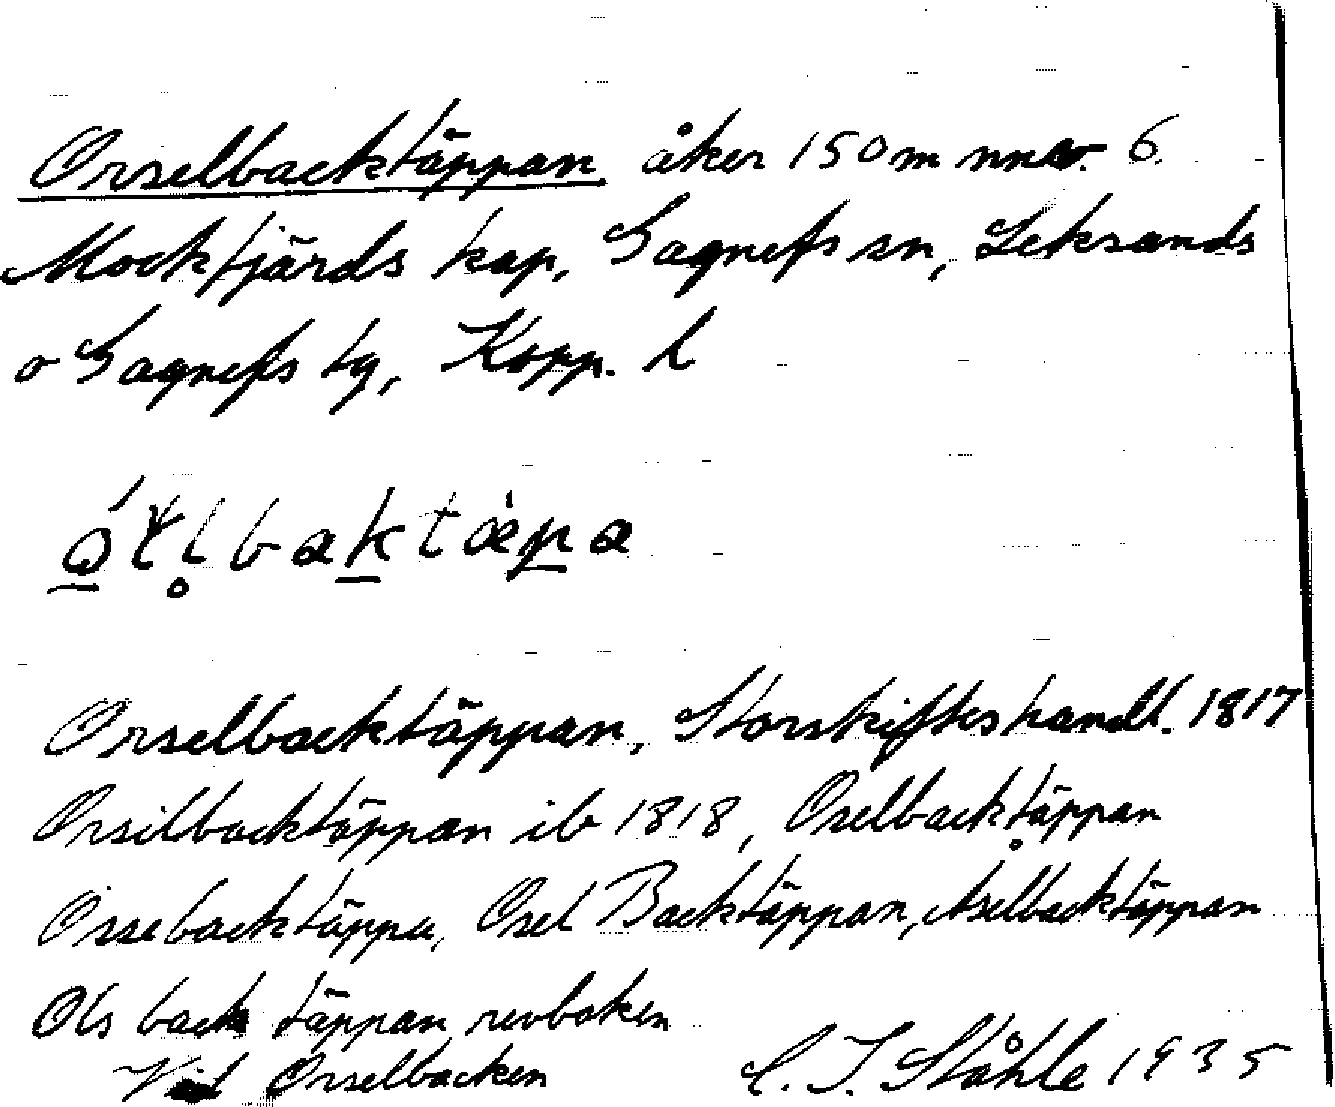 Orselbacktäppan åker 150 m nnv. 6
Mockfjärds kap, Gagnefs sn, Leksands
o Gagnefs tg, Kopp. l
Orselbacktäppan, Storskifteshandl. 1817
Orsilbacktäppan ib 1818, Oselbacktäppan
Ossebacktäppa, Osel Backtäppan, Åselbacktäppan
Ols back täppan revboken
Vid Orselbacken C. I. Ståhle 1935